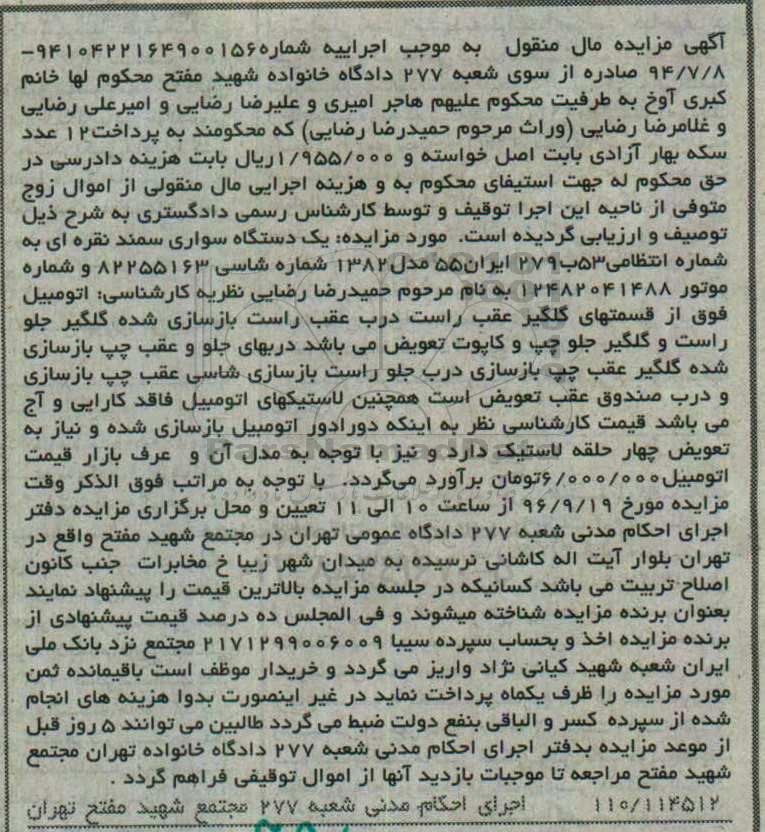 آگهی مزایده مال منقول به موجب اجراییه شماره۹۴۱۰۴۲۲۱۶۴۹۰۰۱۵۶-
۹۴/۷/۸ صادره از سوی شعبه ۲۷۷ دادگاه خانواده شهید مفتح محکوم لها خانم
کبری آوخ به طرفیت محکوم علیهم هاجر امیری و علیرضا رضایی و امیرعلی رضایی
و غلامرضا رضایی (وراث مرحوم حمیدرضا رضایی) که محکومند به پرداخت۱۲ عدد
سکه بهار آزادی بابت اصل خواسته و ۱/۹۵۵/۰۰۰ریال بابت هزینه دادرسی در
حق محکوم له جهت استیفای محکوم به و هزینه اجرایی مال منقولی از اموال زوج
متوفی از ناحیه این اجرا توقیف و توسط کارشناس رسمی دادگستری به شرح ذیل
توصیف و ارزیابی گردیده است. مورد مزایده: یک دستگاه سواری سمند نقره ای به
شماره انتظامی۵۳ب۲۷۹ ایران۵۵ مدل۱۳۸۲ شماره شاسی ۸۲۲۵۵۱۶۳ و شماره
موتور ۱۲۴۸۲۰۴۱۴۸۸ به نام مرحوم حمیدرضا رضایی نظریه کارشناسی: اتومبیل
فوق از قسمتهای گلگیر عقب راست درب عقب راست بازسازی شده گلگیر جلو
راست و گلگیر جلو چپ و کاپوت تعویض می باشد دربهای جلو و عقب چپ بازسازی
شده گلگیر عقب چپ بازسازی درب جلو راست بازسازی شاسی عقب چپ بازسازی
و درب صندوق عقب تعویض است همچنین لاستیکهای اتومبیل فاقد کارایی و آج
می باشد قیمت کارشناسی نظر به اینکه دورادور اتومبیل بازسازی شده و نیاز به
تعویض چهار حلقه لاستیک دارد و نیز با توجه به مدل آن و عرف بازار قیمت
اتومبیل۶/۰۰۰/۰۰۰تومان برآورد می‌گردد. با توجه به مراتب فوق الذکر وقت
مزایده مورخ ۹۶/۹/۱۹ از ساعت ۱۰ الی ۱۱ تعیین و محل برگزاری مزایده دفتر
اجرای احکام مدنی شعبه ۲۷۷ دادگاه عمومی تهران در مجتمع شهید مفتح واقع در
تهران بلوار آیت اله کاشانی نرسیده به میدان شهر زیبا خ مخابرات جنب کانون
اصلاح تربیت می باشد کسانیکه در جلسه مزایده بالاترین قیمت را پیشنهاد نمایند
بعنوان برنده مزایده شناخته میشوند و فی المجلس ده درصد قیمت پیشنهادی از
برنده مزایده اخذ و بحساب سپرده سیبا ۲۱۷۱۲۹۹۰۰۶۰۰۹ مجتمع نزد بانک ملی
ایران شعبه شهید کیانی نژاد واریز می گردد و خریدار موظف است باقیمانده ثمن
مورد مزایده را ظرف یکماه پرداخت نماید در غیر اینصورت بدوا هزینه های انجام
شده از سپرده کسر و الباقی بنفع دولت ضبط می گردد طالبین می توانند ۵ روز قبل
از موعد مزایده بدفتر اجرای احکام مدنی شعبه ۲۷۷ دادگاه خانواده تهران مجتمع
شهید مفتح مراجعه تا موجبات بازدید آنها از اموال توقیفی فراهم گردد .
۱۱۰/۱۱۴۵۱۲ اجرای احکام مدنی شعبه ۲۷۷ مجتمع شهید مفتح تهران